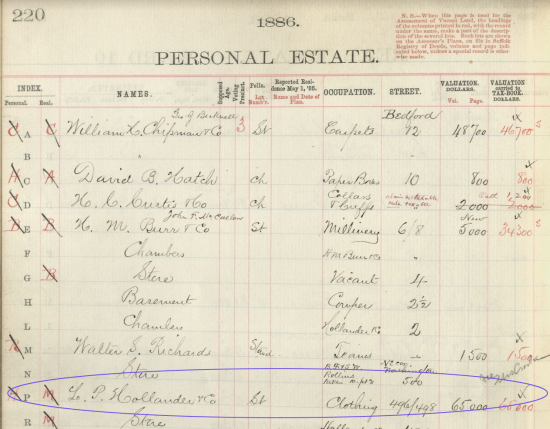 220
1886.
N. B.—When this page is used for the Assessment of Vacant Land, the headings of the columns printed in red, with the record under the same, make a part of the description of the several lots. Such lots are shown on the Assessor's Plans, on file in Suffolk Registry of Deeds, volume and page indicated below, unless a special record is otherwise made.
PERSONAL ESTATE.
INDEX. NAMES. Supposed Age. Voting Precinct. Polls. Reported Residence May 1, '85. OCCUPATION. STREET. VALUATION. DOLLARS. VALUATION carried to TAX-BOOK. DOLLARS.
Personal. Real. Lot Number. Name and Date of Plan. Vol. Page.
Geo. G. Bicknell Bedford
C A C William L. Chipman & Co 3 St Carpets 72 48700 46700
B "
H C A David B. Hatch Ch Paper Boxes 10 800 800
C D H. C. Curtis & Co Ch Collars & Cuffs 2000 2000
John F. McCaslin New
B E B H. M. Burr & Co St Millinery 6/8 5000 34300
F Chambers H. M. Burr & Co "
G B Store Vacant 4
H Basement Cowper 2½
L Chamber Hollander & Co 2
M Walter S. Richards Stand Teams – 1500 1500
N Store Rollins 500
P M L. P. Hollander & Co St Clothing 496/498 65000 65000
R M Store